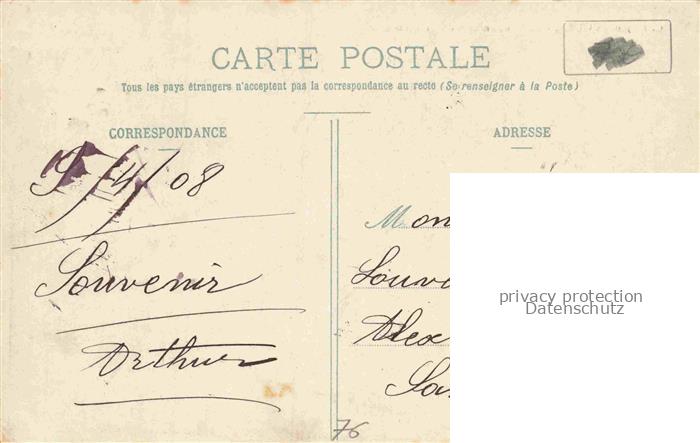 CARTE POSTALE
Tous les pays étrangers n'acceptent pas la correspondance au recto (Se renseigner à la Poste)
CORRESPONDANCE
9/4/08
Souvenir
Arthur
ADRESSE
privacy protection
Datenschutz
76